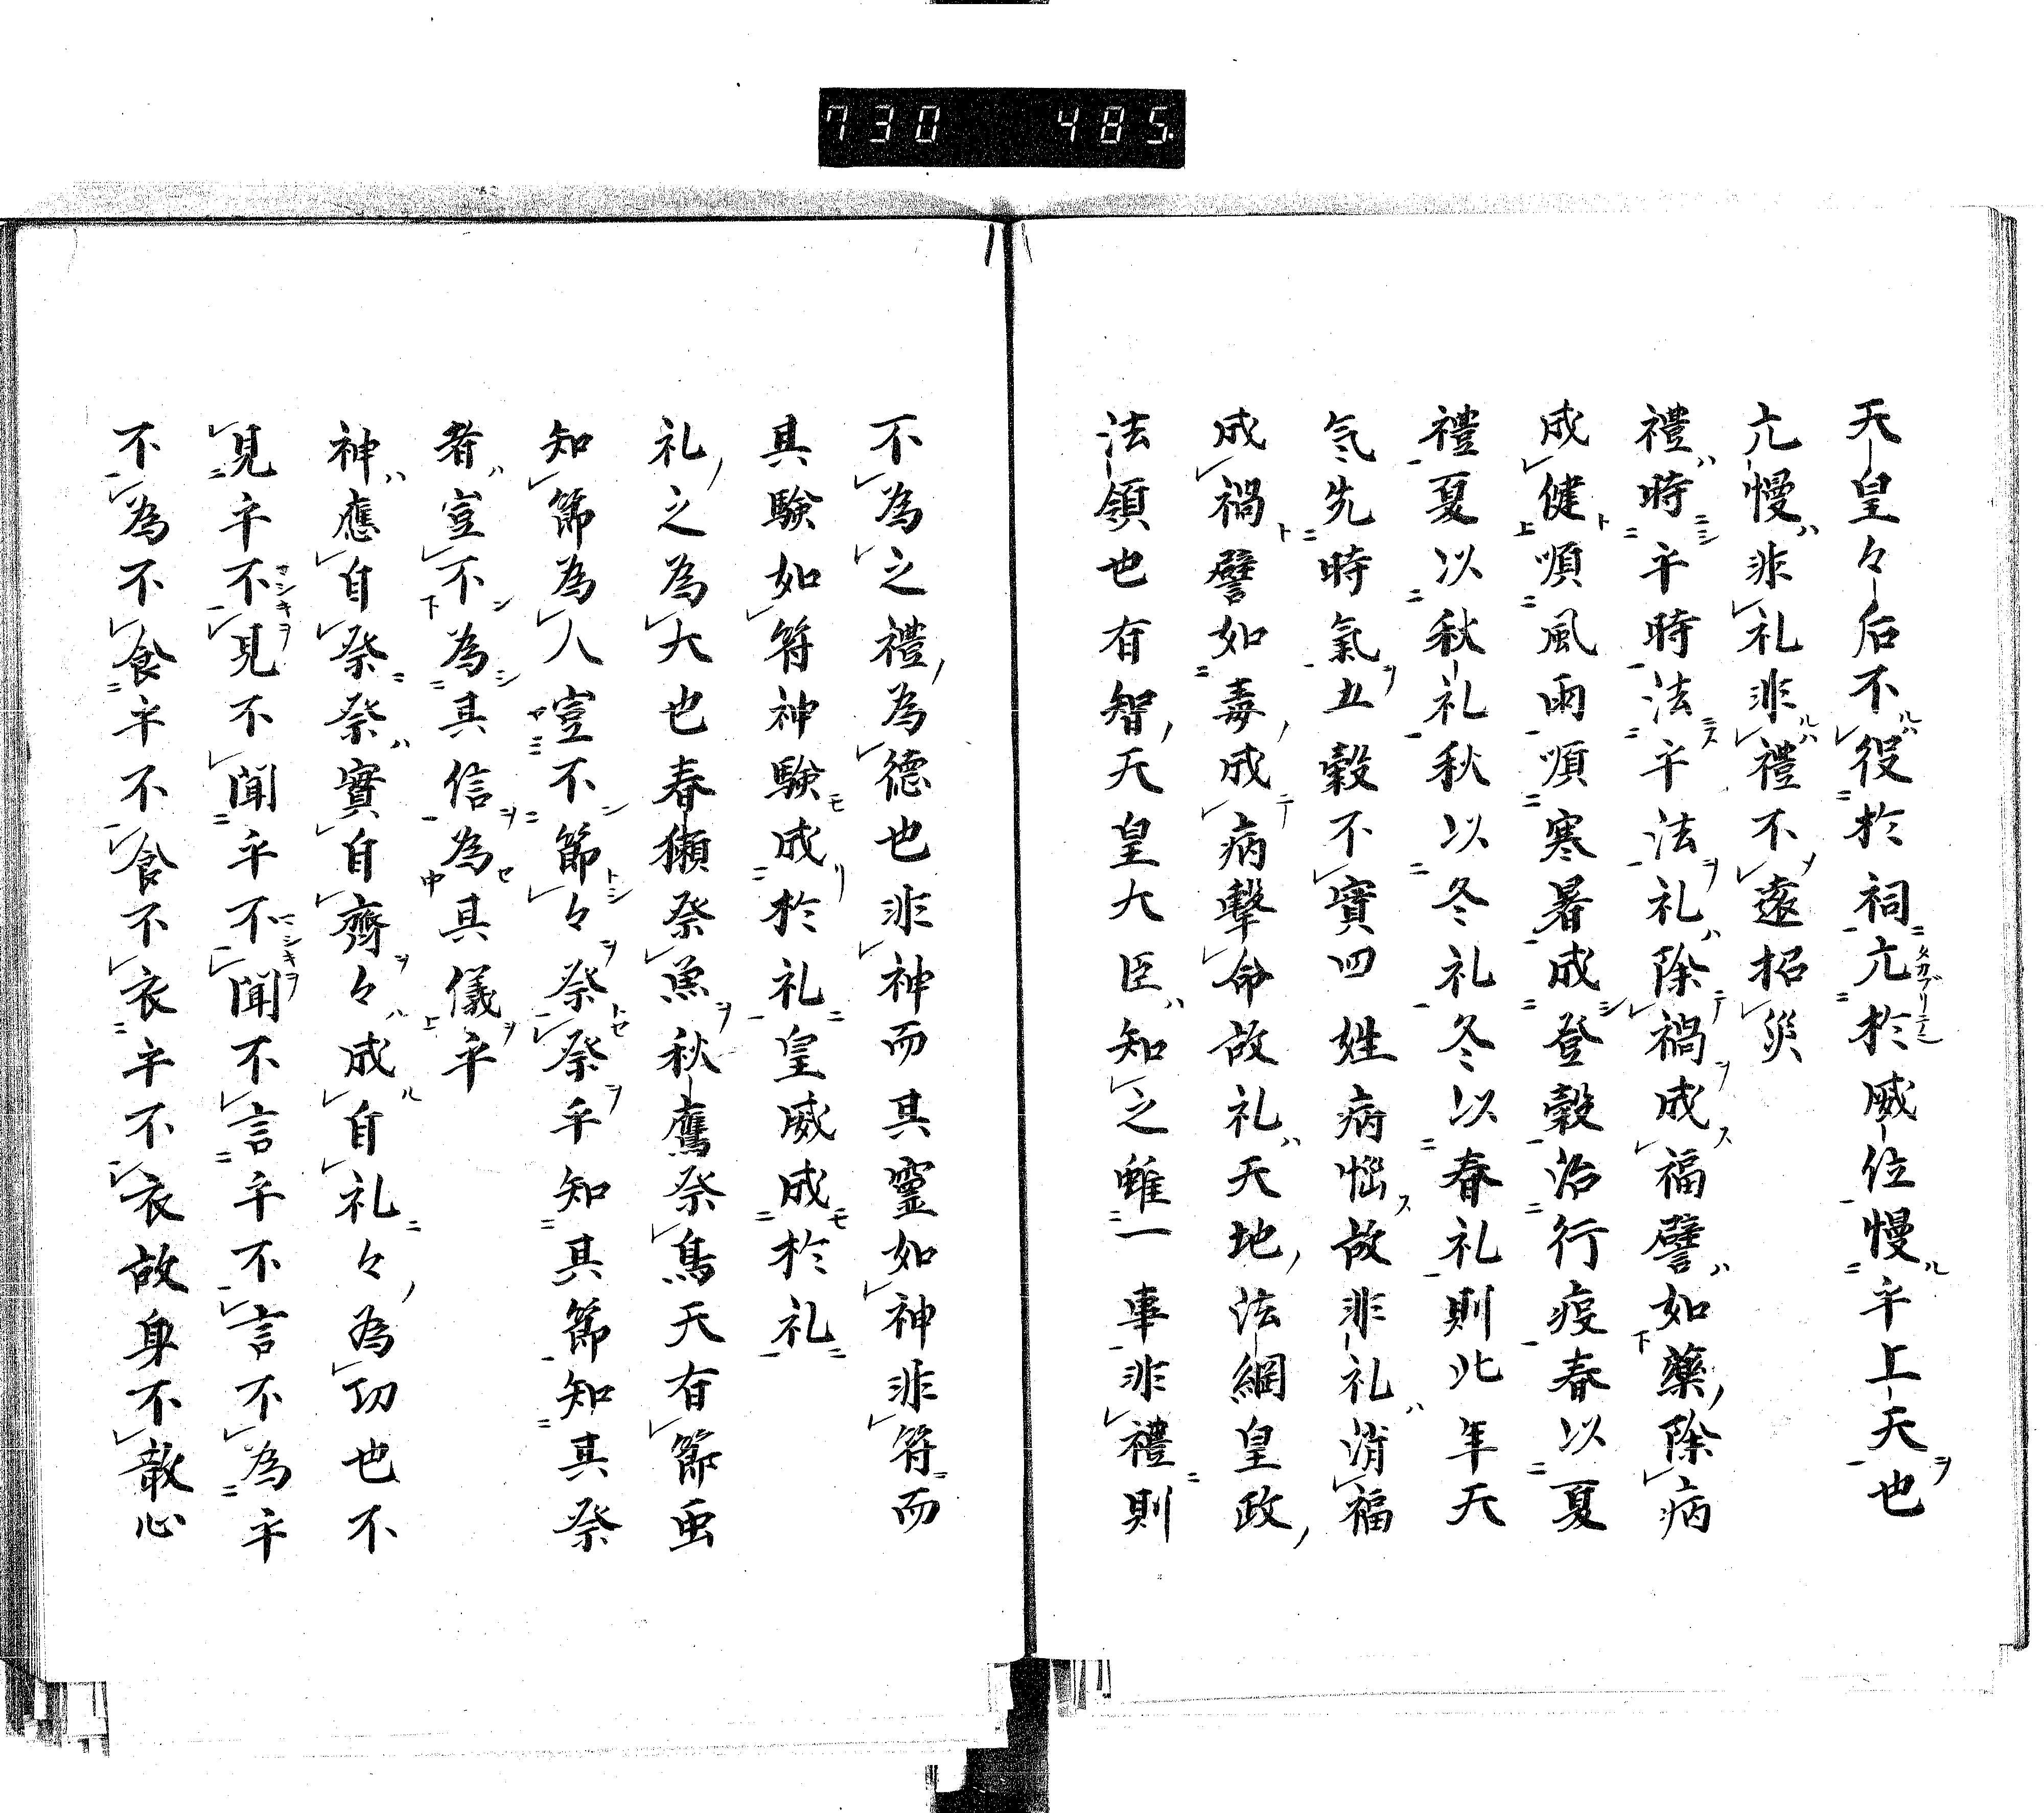 730 485.
天皇々后不役於祠亢於威位慢乎上天也
亢慢非礼非禮不遠招災
禮時乎時法乎法礼除禍成福譬如藥除病
成健順風雨順寒暑成登穀治行疫春以夏
禮夏以秋礼秋以冬礼冬以春礼則此年天
気先時氣五穀不實四姓病惱故非礼消福
成禍譬如毒成病擊命故礼天地法綱皇政
法領也有智天皇大臣知之雖一事非禮則
不為之禮為德也非神而其靈如神非符而
其驗如符神驗成於礼皇威成於礼
礼之為大也春獺祭魚秋鷹祭鳥天有節虫
知節為人豈不節々祭祭乎知其節知其祭
者豈不為其信為其儀乎
神應自祭祭實自齊々成自礼々為功也不
見乎不見不聞乎不聞不言乎不言不為乎
不為不食乎不食不衣乎不衣故身不散心